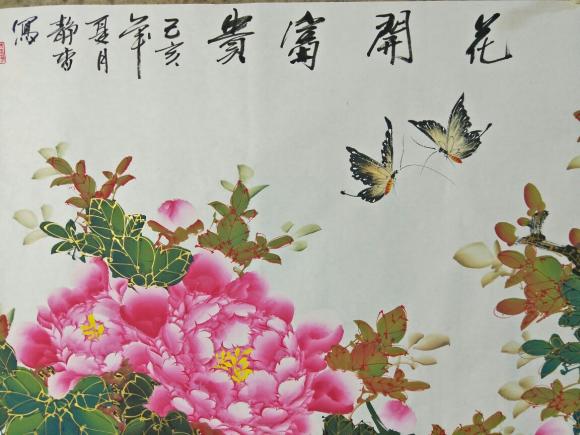 花開富貴
己亥
年
夏月
静
寫